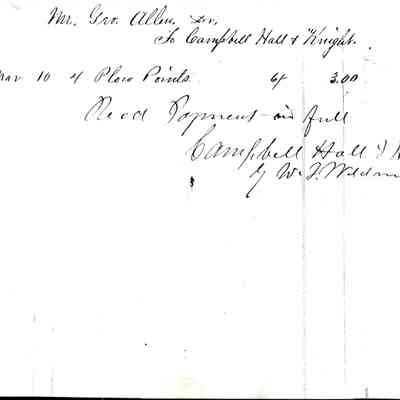 Mr. Geo. Allen Dr.
To Campbell Hall & Knight.
Mar 10 4 Plow Points 6/ 3.00
Recd Payment in full
Campbell Hall & K